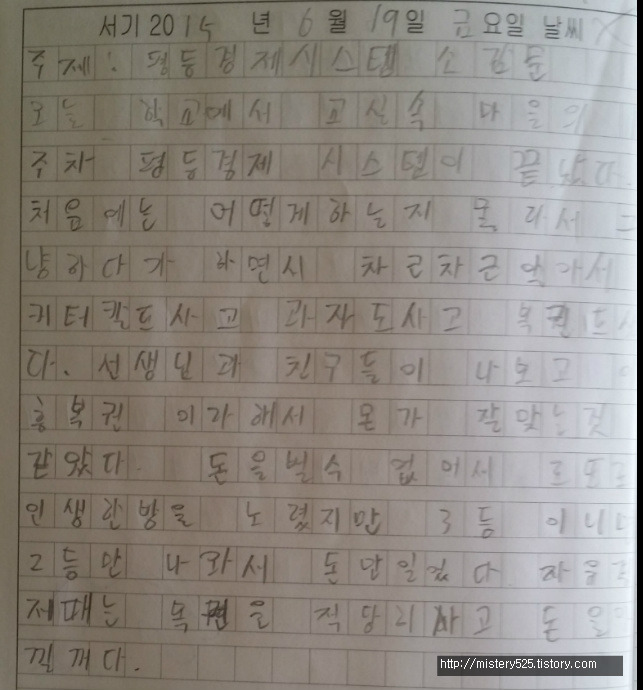 서기 2015 년 6 월 19일 금요일 날씨
주제: 평등경제시스템 소감문
오늘 학교에서 교실속 마을의
주차 평등경제 시스템이 끝났다.
처음에는 어떻게하는지 몰라서 그
냥하다가 하면서 차근차근 알아서
키터칼드사고 과자도사고 복권도
다. 선생님과 친구들이 나보고
흥복권 이라해서 뭔가 잘맞는것
같았다. 돈을벌수 없어서 로또로
인생한방을 노렸지만 3등 이나
2등만 나와서 돈만잃었다. 자음
제때는 복권을 적당히사고 돈을
낄꺼다.
http://mistery525.tistory.com